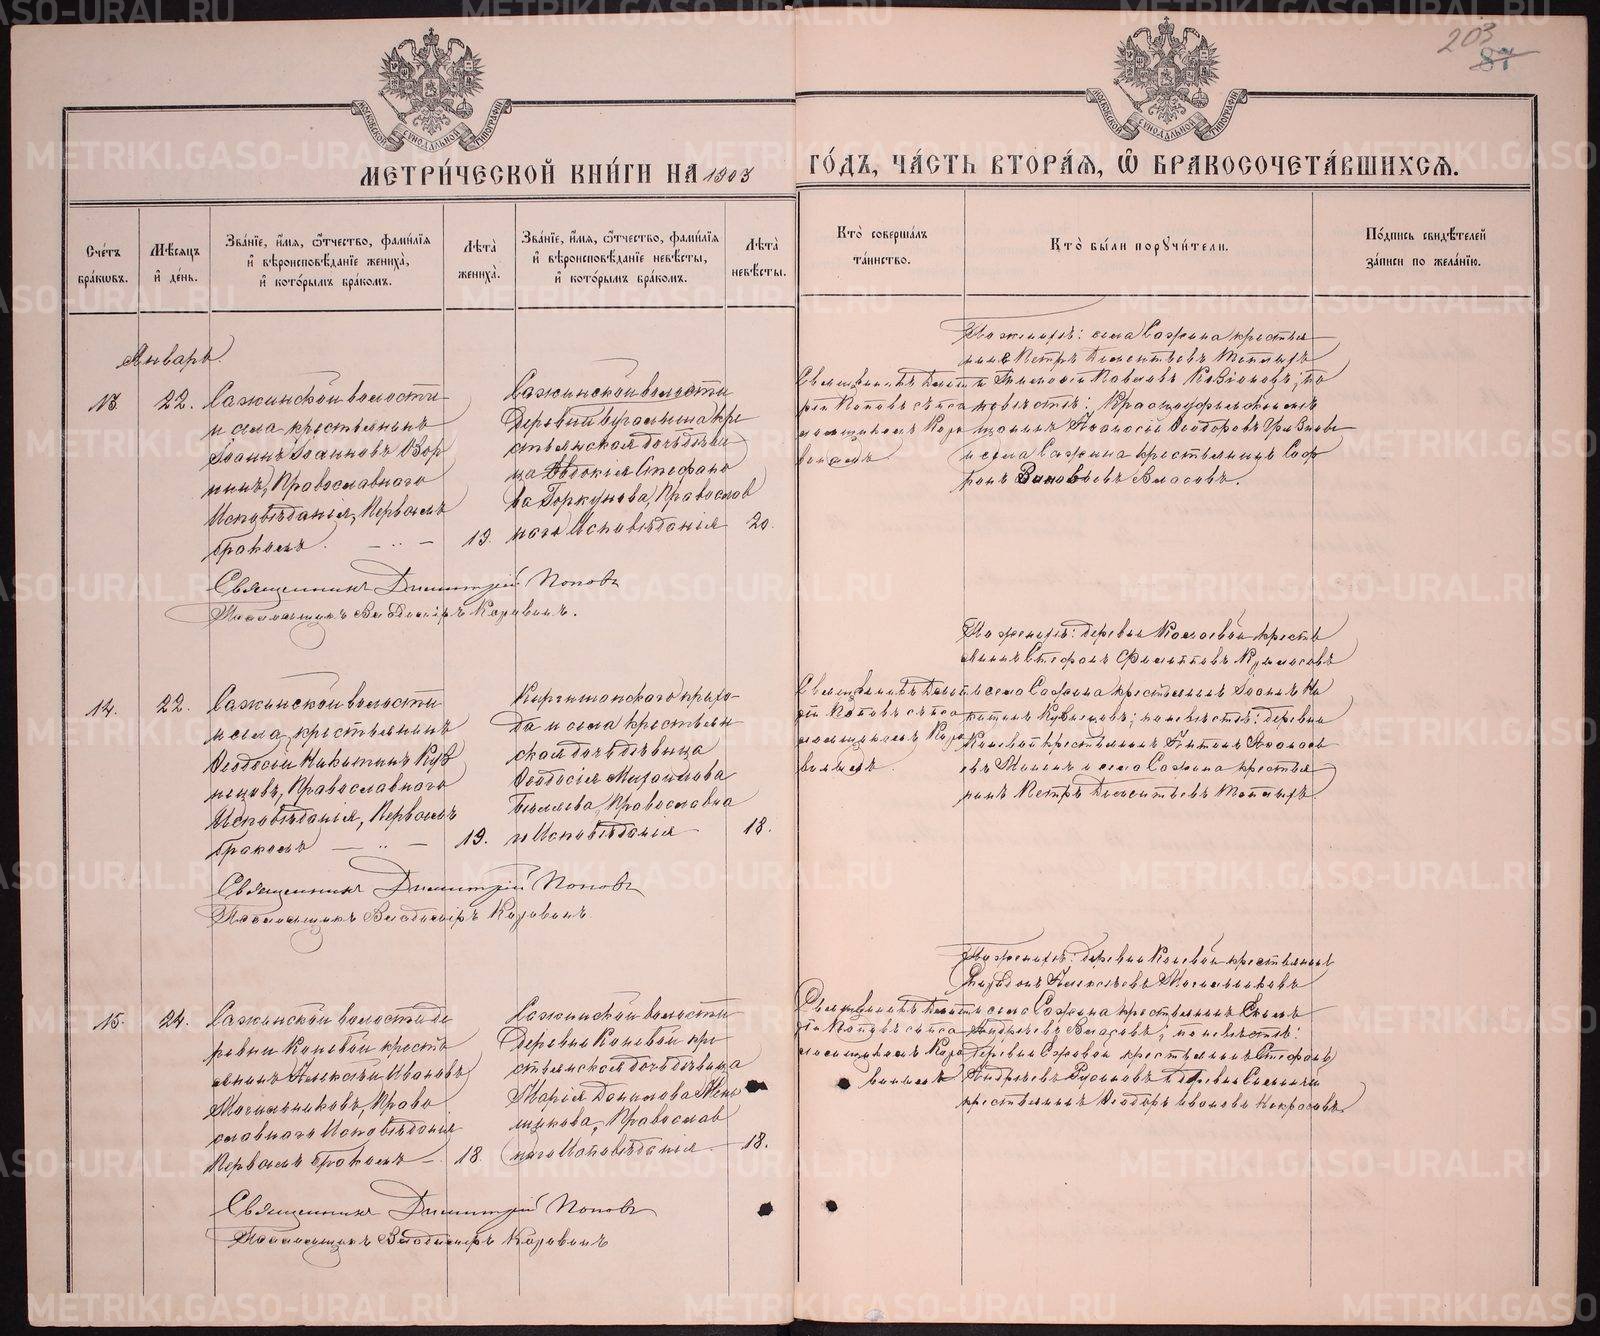 203
87
МЕТРИ́ЧЕСКОЙ КНИ́ГИ НА 1903 ГО́ДЪ, ЧА́СТЬ ВТОРА́Я, Ѡ БРАКОСОЧЕТА́ВШИХСЯ.
Счéтъ бра́кѡвъ.
Мѣ́сяцъ и де́нь.
Зва́нїе, и́мя, ѻ́тчество, фами́лїя и вѣроисповѣ́данїе жениха̀, и кото́рымъ бра́комъ.
Лѣ́та жениха̀.
Зва́нїе, и́мя, ѻ́тчество, фами́лїя и вѣроисповѣ́данїе невѣ́сты, и кото́рымъ бра́комъ.
Лѣ́та невѣ́сты.
Кто̀ соверша́лъ та́инство.
Кто̀ бы́ли поручи́тели.
По́дпись свидѣ́телей за́писи по жела́нїю.
Январь.
13.
22.
Сажинской волости
и села крестьянинъ
Іоаннъ Іоанновъ Зор
нинъ, Православнаго
Исповѣданія, Первымъ
бракомъ.
19.
Сажинской волости
деревни Бугалыша кре
стьянская дочь дѣви
ца Евдокія Стефано
ва Горкунова, Православ
наго Исповѣданія
20.
Священникъ Димит
рій Поповъ съ пса
ломщикомъ Каро
винымъ
По женихѣ: села Сажина крестья
нинъ Петръ Дементьевъ
и Тимофей Павловъ
по
невѣстѣ: Красноуфимскій мѣ
щанинъ Афанасій Ѳеодоровъ
и села Сажина крестьянинъ Соф
ронъ Зиновьевъ Власовъ.
Священникъ Димитрій Поповъ
Псаломщикъ Владиміръ Каровинъ.
14.
22.
Сажинской волости
и села, крестьянинъ
Ѳеодосій Никитинъ Куз
нецовъ, Православнаго
Исповѣданія, Первымъ
бракомъ
19.
Киргишанскаго прихо
да и села крестьян
ская дочь дѣвица
Ѳеодосія Михаилова
Бѣляева, Православна
го Исповѣданія
18.
Священникъ Димит
рій Поповъ съ пса
ломщикомъ Каро
винымъ.
По женихѣ: деревни Коневой кресть
янинъ Стефанъ Филипповъ
и села Сажина крестьянинъ Іоаннъ Ни
китинъ Кузнецовъ; по невѣстѣ: деревни
Коневой крестьянинъ Антонъ Афанась
евъ и села Сажина крестья
нинъ Петръ Дементьевъ
Священникъ Димитрій Поповъ
Псаломщикъ Владиміръ Каровинъ.
15.
24.
Сажинской волости де
ревни Коневой кресть
янинъ Алексѣй Ивановъ
Могильниковъ, Право
славнаго Исповѣданія
Первымъ бракомъ
18.
Сажинской волости
Деревни Коневой кре
стьянская дочь дѣвица
Марія Данилова Мень
щикова, Православ
наго Исповѣданія
18.
Священникъ Димит
рій Поповъ съ пса
ломщикомъ Каро
винымъ
По женихѣ: деревни Коневой крестьянинъ
Спиридонъ Алексѣевъ Могильниковъ
и села Сажина крестьянинъ
Андреевъ Власовъ; по невѣстѣ:
деревни крестьянинъ Стефанъ
Андреевъ Русиновъ и деревни
крестьянинъ Ѳеодоръ Ивановъ Некрасовъ.
Священникъ Димитрій Поповъ
Псаломщикъ Владиміръ Каровинъ
METRIKI.GASO-URAL.RU